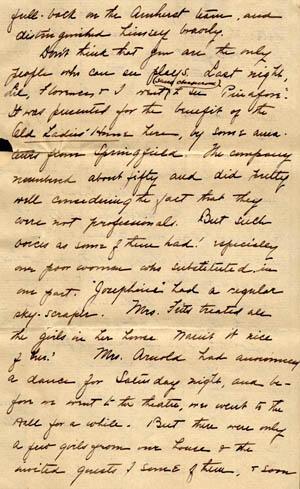 full-back on the Amherst team, and
distinguished himself bravely.
Don't think that you are the only
people who can see plays. Last night,
Lil, Florence & I (and audience) went to see "Pinafore".
It was presented for the benefit of the
Old Ladies' Home here, by some ama-
teurs from Springfield. The company
numbered about fifty and did pretty
well considering the fact that they
were not professionals. But such
voices as some of them had! especially
one poor woman who substituted in
one part. "Josephine" had a regular
sky-scraper. Mrs. Fitts treated all
the girls in her house. Wasn't it nice
of her! Mrs. Arnold had announced
a dance for Saturday night, and be-
fore we went to the theatre, we went to the
Hall for a while. But there were only
a few girls from our house & the
invited guests & some of them, & soon